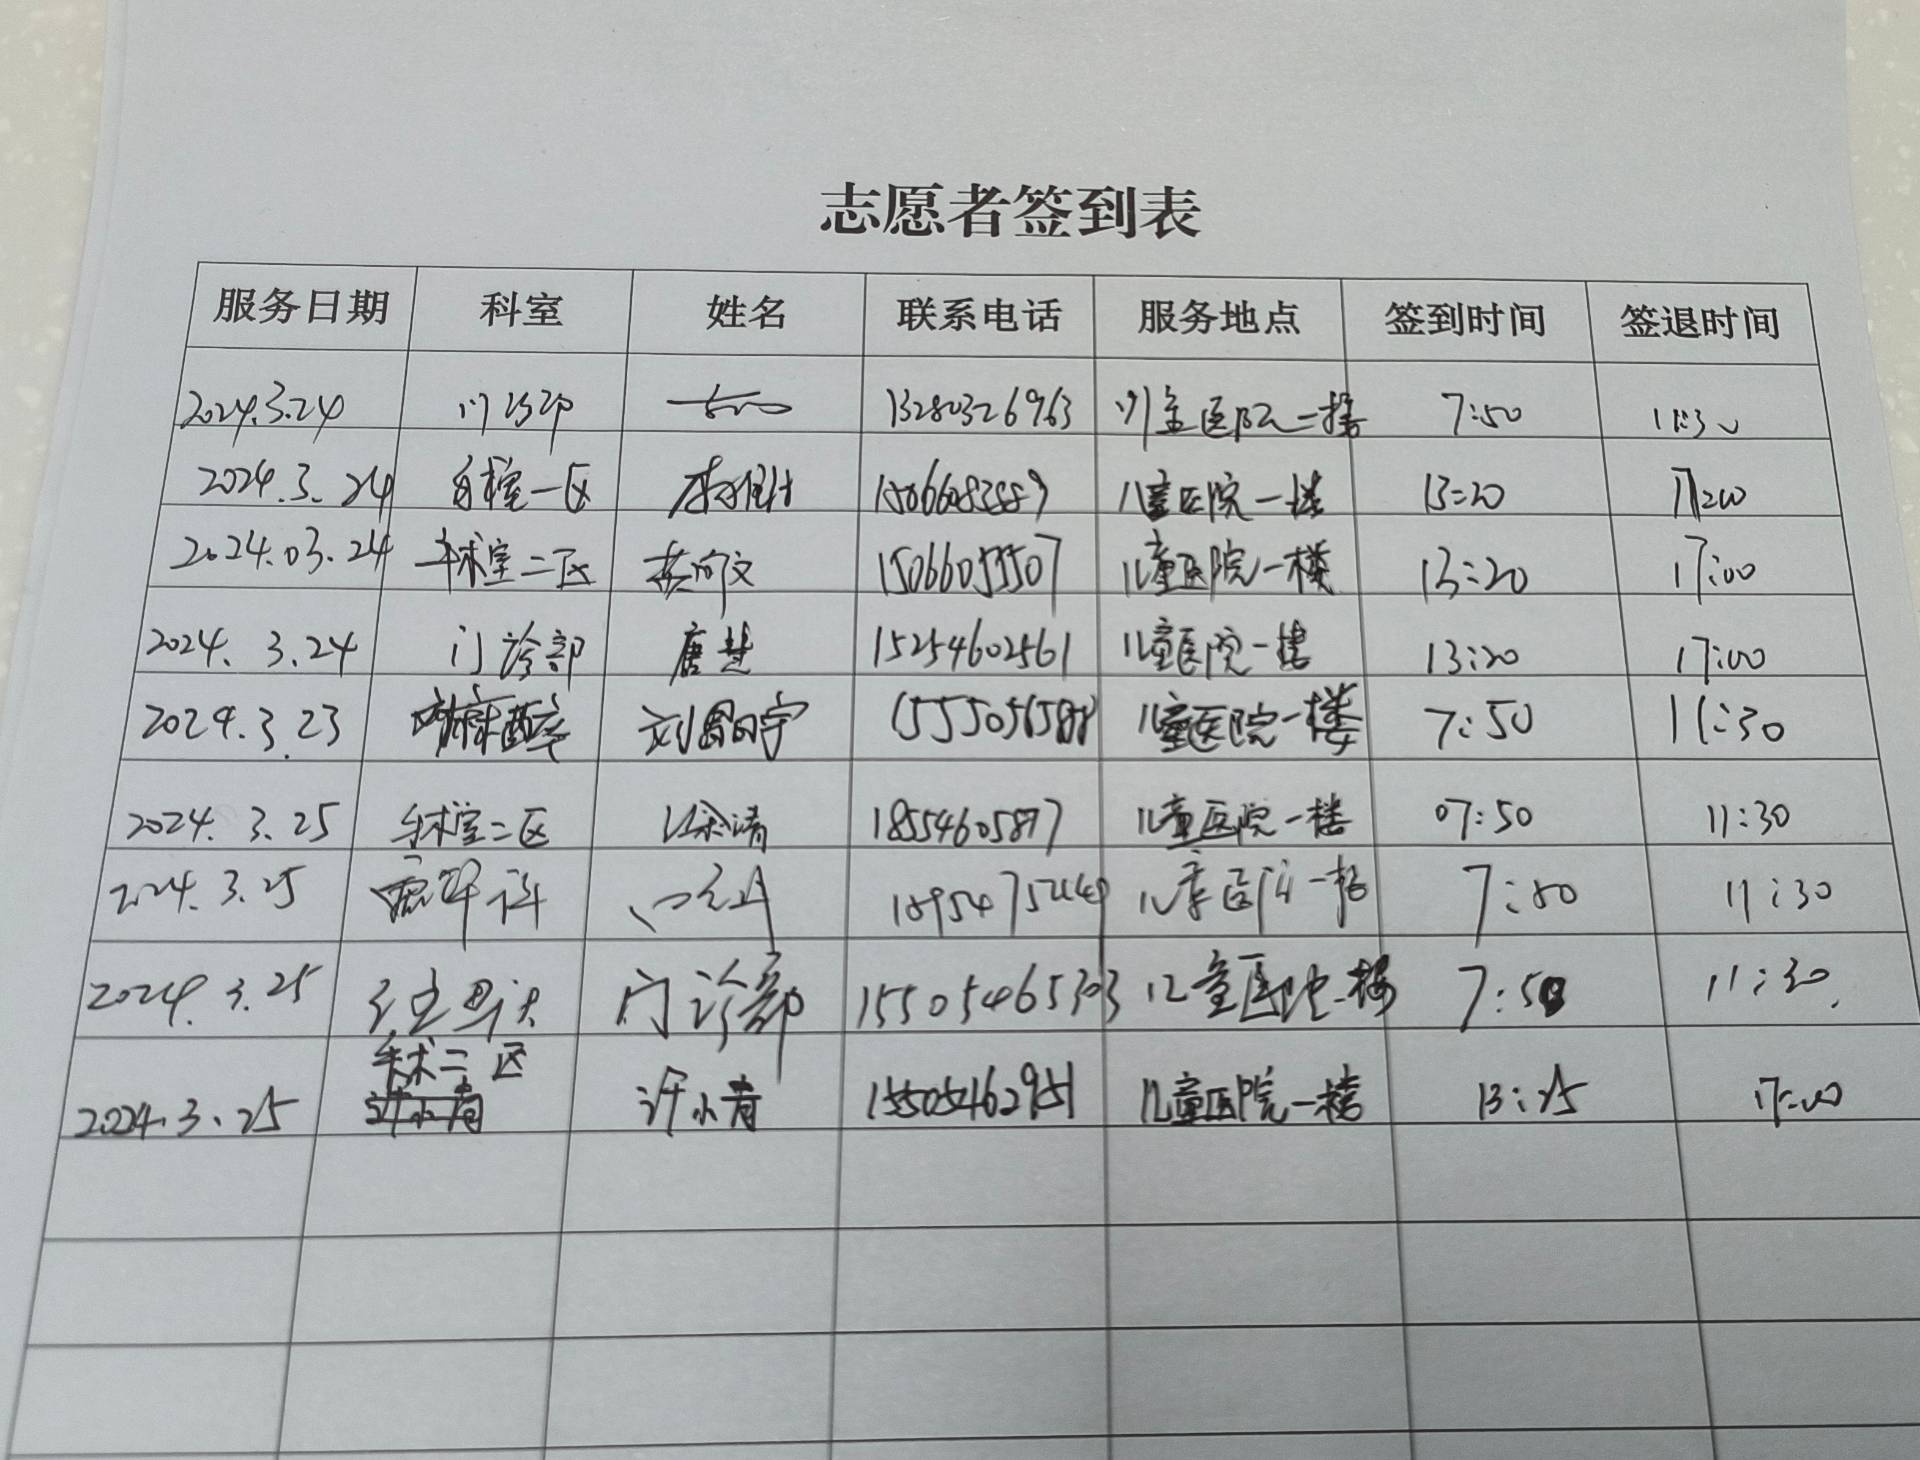 志愿者签到表
服务日期 科室 姓名 联系电话 服务地点 签到时间 签退时间
2024.3.24 门诊部 13280326963 儿童医院一楼 7:50 11:30
2024.3.24 手术室一区 儿童医院一楼 13:20
2024.03.24 手术室二区 儿童医院一楼 13:20 17:00
2024.3.24 门诊部 唐楚 15254602561 儿童医院一楼 13:20 17:00
2024.3.23 麻醉 刘 宇 儿童医院一楼 7:50 11:30
2024.3.25 手术室二区 徐清 儿童医院一楼 07:50 11:30
2024.3.25 儿童医院一楼 7:50 11:30
2024.3.25 门诊部 15505465303 儿童医院一楼 7:50 11:30
手术二区
2024.3.25 许小青 15505462951 儿童医院一楼 13:25 17:00